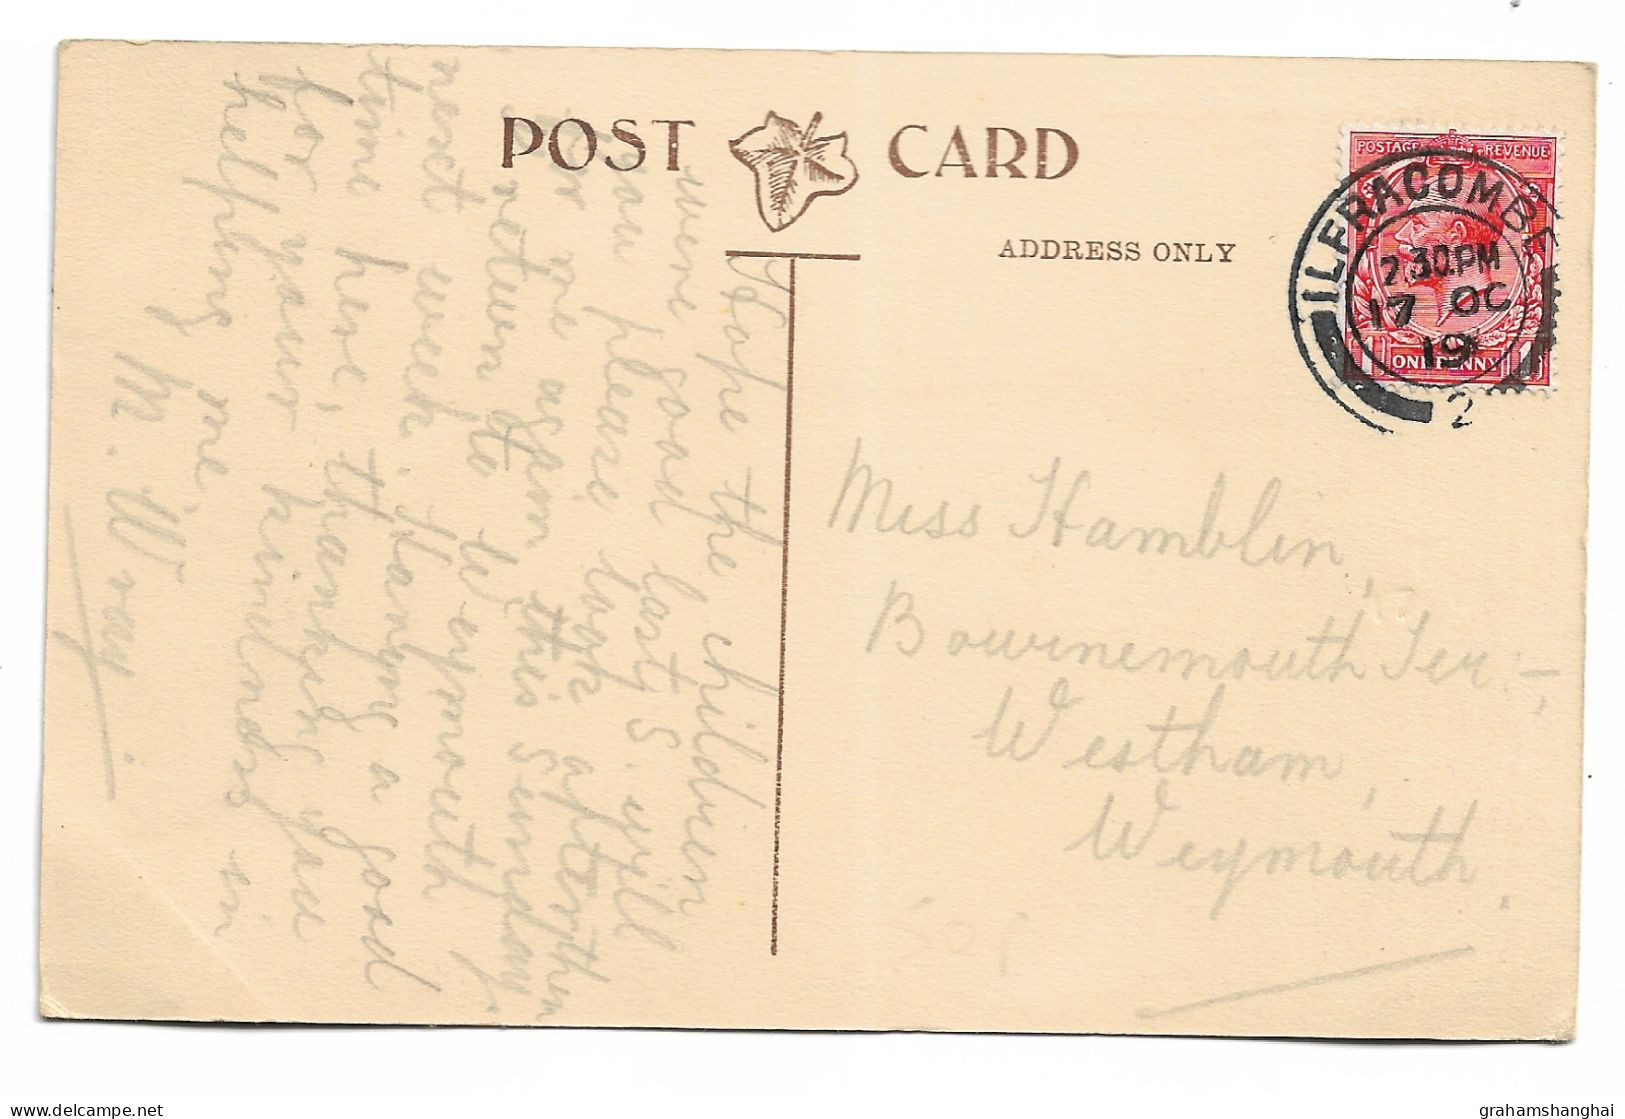 POST CARD
ADDRESS ONLY
POSTAGE REVENUE
ONE PENNY
ILFRACOMBE
2.30.PM
17 OC
19
2
Miss Hamblin,
Bournemouth Ter:-,
Westham,
Weymouth.
I Hope the children
were good last S. will
you please look after them
for me again this Sunday,
I return to Weymouth
next week. Having a good
time here, thanking you
for your kindness in
helping me
M. Wray
grahamshanghai